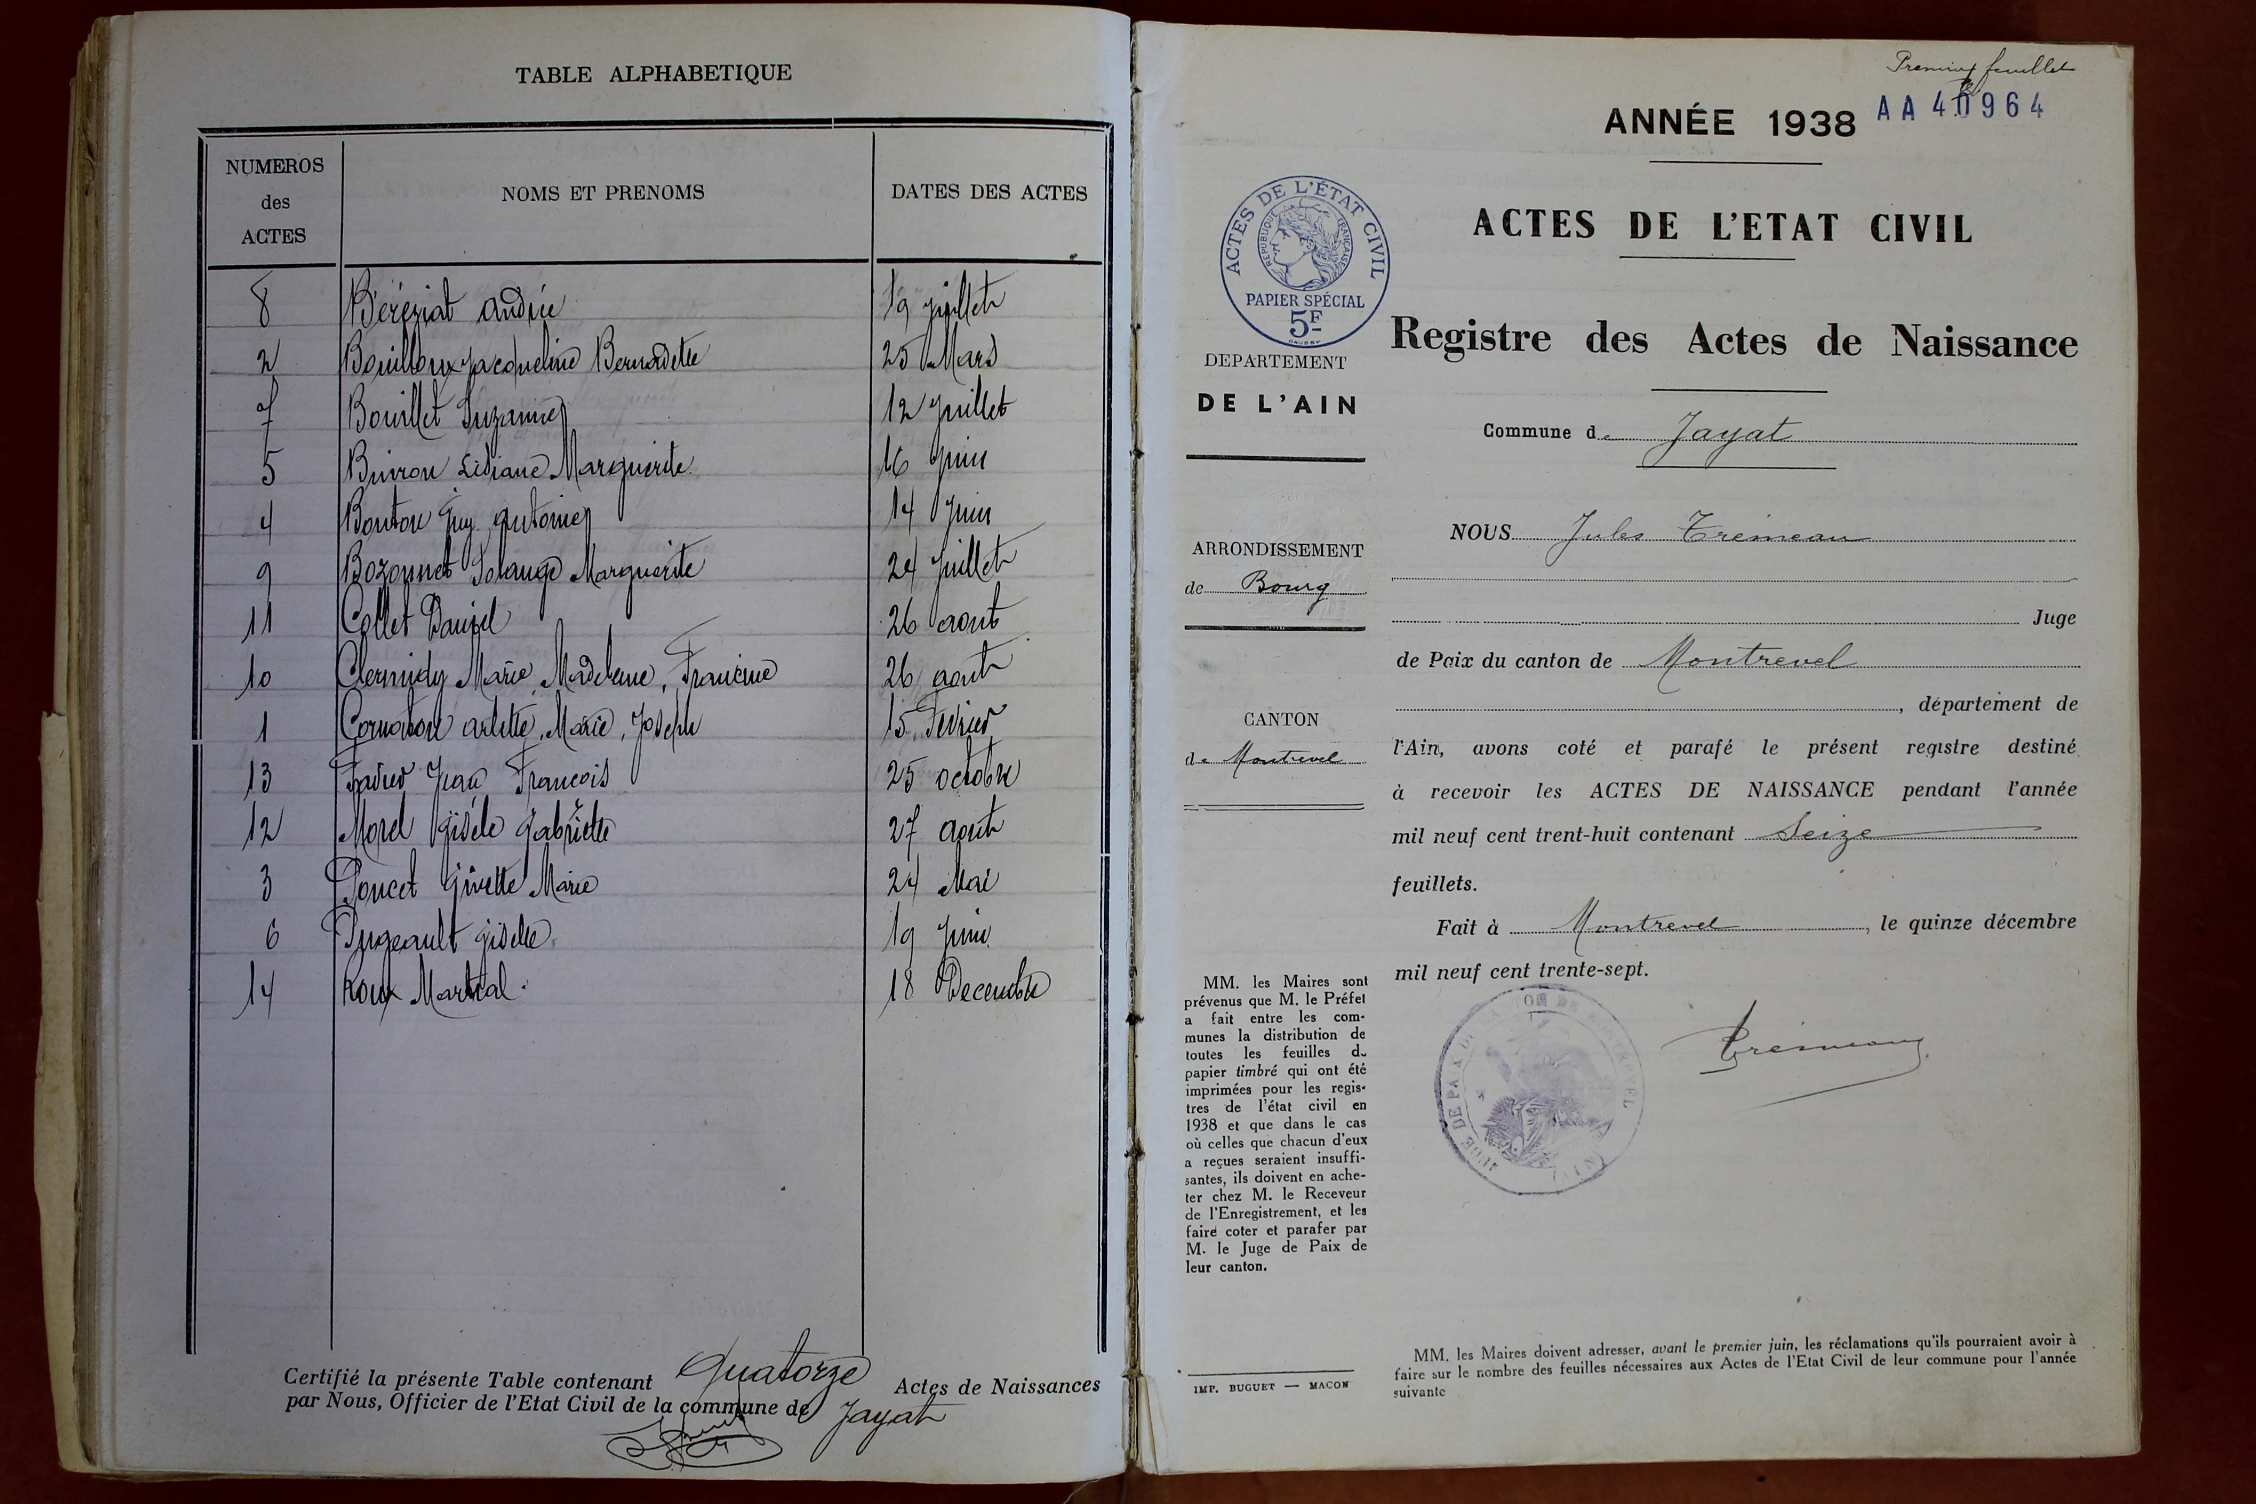 TABLE ALPHABETIQUE
NUMEROS
des
ACTES
NOMS ET PRENOMS
DATES DES ACTES
8 Béréziat Andrée 19 juillet
2 Bouilloux Jacqueline Bernadette 25 Mars
7 Bouillet Suzanne 12 Juillet
5 Buiron Lidiane Marguerite 16 Juin
4 Bouton Guy Antoine 14 Juin
9 Bozonnet Solange Marguerite 24 Juillet
11 Collet Daniel 26 aout
10 Clermidy Marie, Madeleine, Francine 26 aout
1 Cornaton Arlette, Marie, Joseph 15 Fevrier
13 Favier Jean François 25 octobre
12 Morel Gisèle Gabrielle 27 aout
3 Poncet Ginette Marie 24 Mai
6 Pugeault Giselle 19 Juin
14 Roux Martial 18 Decembre
Certifié la présente Table contenant Quatorze Actes de Naissances
par Nous, Officier de l'Etat Civil de la commune de Jayat
Premier feuillet
AA 40964
ANNÉE 1938
ACTES DE L'ÉTAT CIVIL
RÉPUBLIQUE FRANÇAISE
PAPIER SPÉCIAL
5F
ACTES DE L'ETAT CIVIL
Registre des Actes de Naissance
DEPARTEMENT
DE L'AIN
Commune de Jayat
ARRONDISSEMENT
de Bourg
CANTON
de Montrevel
NOUS Jules Trémeau
Juge
de Paix du canton de Montrevel
, département de
l'Ain, avons coté et parafé le présent registre destiné
à recevoir les ACTES DE NAISSANCE pendant l'année
mil neuf cent trent-huit contenant Seize
feuillets.
Fait à Montrevel, le quinze décembre
mil neuf cent trente-sept.
Trémeau
MM. les Maires sont
prévenus que M. le Préfet
a fait entre les com-
munes la distribution de
toutes les feuilles du
papier timbré qui ont été
imprimées pour les regis-
tres de l'état civil en
1938 et que dans le cas
où celles que chacun d'eux
a reçues seraient insuffi-
santes, ils doivent en ache-
ter chez M. le Receveur
de l'Enregistrement, et les
faire coter et parafer par
M. le Juge de Paix de
leur canton.
IMP. BUGUET — MACON
MM. les Maires doivent adresser, avant le premier juin, les réclamations qu'ils pourraient avoir à
faire sur le nombre des feuilles nécessaires aux Actes de l'Etat Civil de leur commune pour l'année
suivante